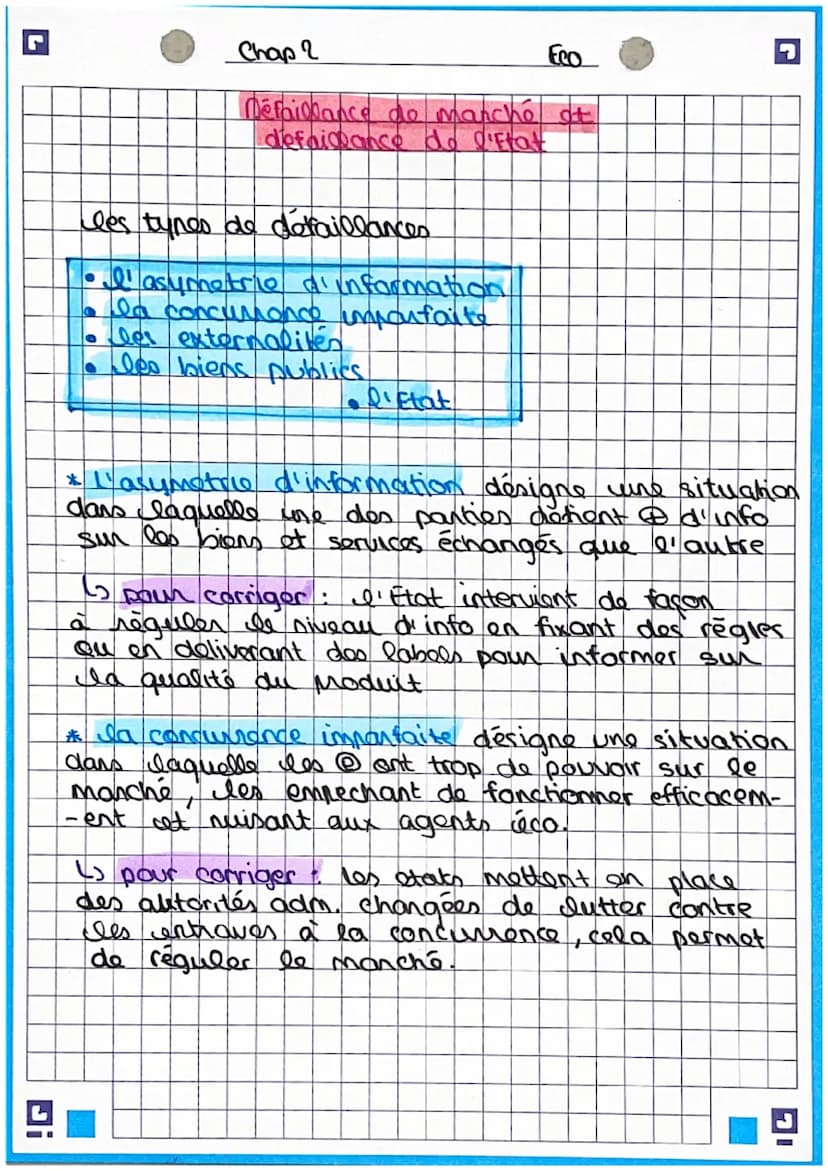 Chap 2 Eco
Défaillance de marché et
défaillance de l'Etat
les types de défaillances
• l'asymetrie d'information
• la concurrence imparfaite
• les externalités
• les biens publics
• l'Etat
* L'asymetrie d'information désigne une situation
dans laquelle une des parties détient ⊕ d'info
sur les biens et services échangés que l'autre
↳ pour corriger : l'État intervient de façon
à réguler le niveau d'info en fixant des règles
ou en deliverant des labels pour informer sur
la qualité du produit
* la concurrence imparfaite désigne une situation
dans laquelle les ⓔ ont trop de pouvoir sur le
marché, les empechant de fonctionner efficacem-
-ent et nuisant aux agents éco.
↳ pour corriger : les etats mettent en place
des autorités adm. chargées de lutter contre
les entraves à la concurrence, cela permet
de réguler le marché.